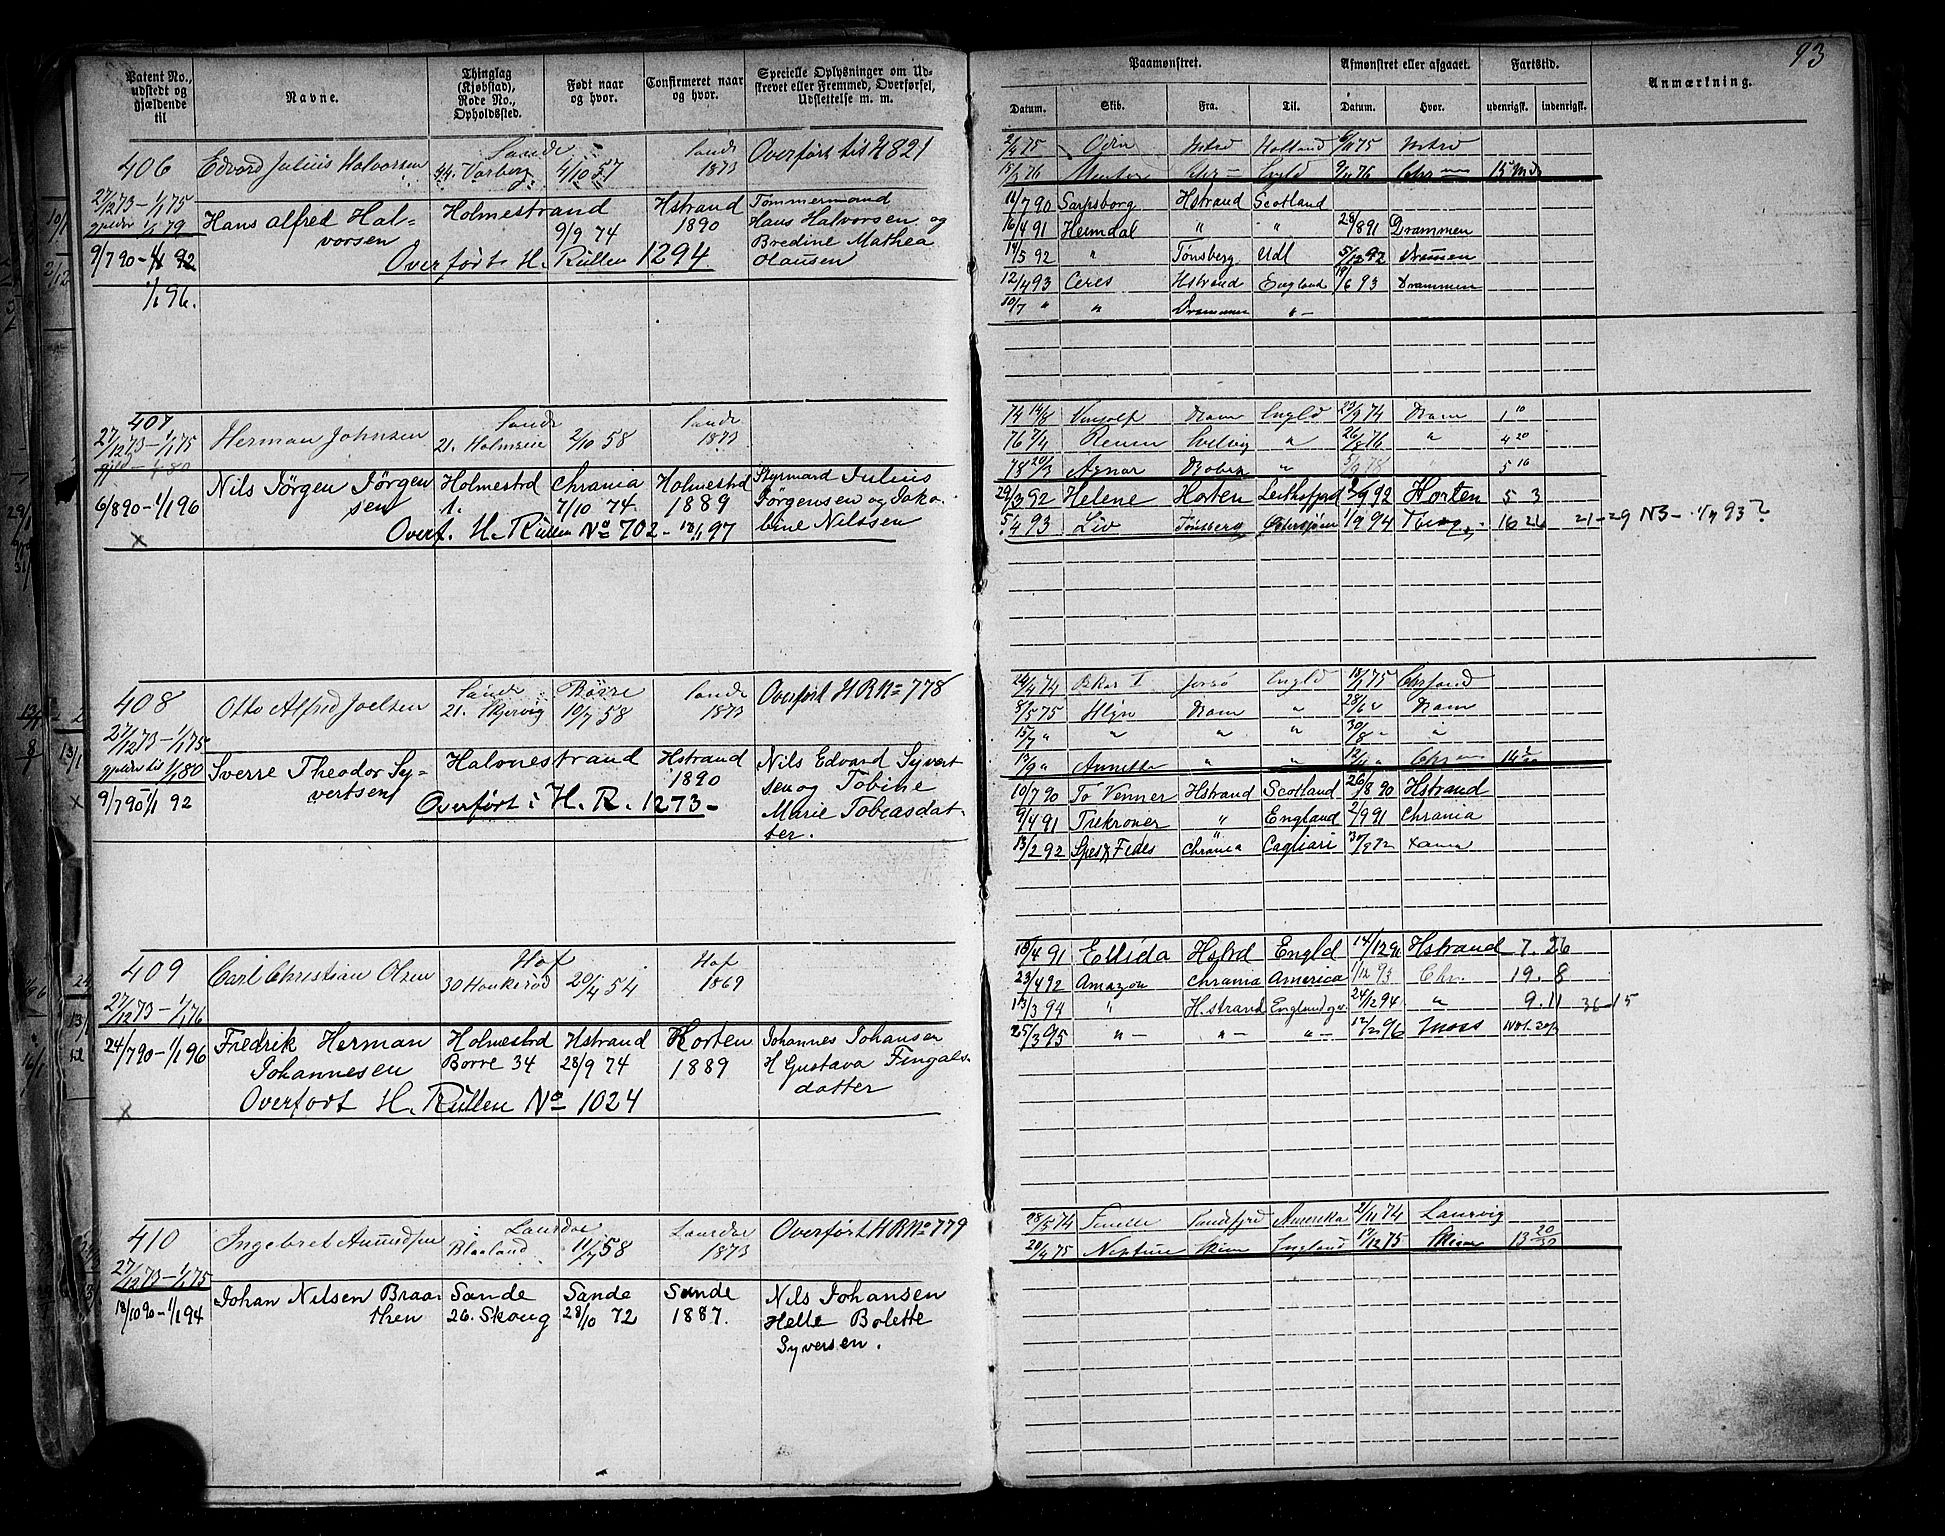 93
Patent No., udstedt og gjældende til
Navne.
Thinglag (Kjøbstad), Rode No., Opholdssted.
Født naar og hvor.
Confirmeret naar og hvor.
Specielle Oplysninger om Udskrevet eller Fremmed, Overførsel, Udslettelse m. m.
Paamønstret.
Afmønstret eller afgaaet.
Fartstid.
Anmærkning.
Datum. Skib. Fra. Til. Datum. Hvor. udenrigsk. indenrigsk.
406 Edvard Julius Halvorsen Sande 44. Varberg 4/10 57 Sande 1873 Overført til H 821
27/12 73 – 1/1 75
gjelder 1/1 79
Hans Alfred Halvorsen Holmestrand 9/9 74 Hstrand 1890 Tømmermand Hans Halvorsen og Bredine Mathea Olausen
9/7 90 – 1/1 92
Overført H. Rullen 1294
1/1 96.
2/4 75 Odin Holland 6/11 75
15/3 76 Chr – Engld 9/11 76 Chr 15 Md
16/7 90 Sarpsborg Hstrand Scotland
16/4 91 Heimdal " " 28/8 91 Drammen
14/5 92 " Tønsberg Udl 5/12 92 Drammen
12/4 93 Ceres Hstrand England 19/6 93 Drammen
10/7 " " Drammen " –
407 Herman Johnsen Sande 21. Holmsen 2/10 58 Sande 1873
27/12 73 – 1/1 75
gjeld – 1/1 80
Nils Jörgen Jörgensen Holmestrd 1. Chrania 7/10 74 Holmestrd 1889 Styrmand Julius Jörgensen og Jakobine Nilssen
6/8 90 – 1/1 96
Overf. H. Rullen No 702 – 12/1 97
x
74 14/4 Dram Engld 23/9 74 Dram 1 10
76 7/4 Svelvig " 26/8 76 " 4 20
78 20/3 Agnar " 5/9 78 " 5 16
29/3 92 Helene Horten Leithsfjord 2/9 92 Horten 5 3
5/4 93 Liv Tønsberg Østersjøen 1/9 94 Tbrg 16 26 21–29 N3 – 1/7 93?
408 Otto Alfred Joelsen Sande 21. Skjervig Börre 10/7 58 Sande 1873 Overført H R No 778
27/12 73 – 1/1 75
gjelder til 1/1 80
Sverre Theodor Syvertsen Holmestrand Hstrand 1890 Nils Edvard Syvertsen og Tobine Marie Tobiasdatter.
9/7 90 – 1/1 92
Overført i H. R. 1273 –
24/4 74 Engld 18/1 75 Chrsand
8/5 75 Hlyn Dram " 28/6 " Dram
15/7 " " " " 30/8 " "
13/9 " Annette " " 12/11 " Chr
10/7 90 To Venner Hstrand Scotland 26/8 90 Hstrand
9/4 91 Trekroner " England 2/9 91 Chrania
13/2 92 Spes & Fides Chrania Cagliari
409 Carl Christian Olsen Hof 30 Haukeröd 20/4 54 Hof 1869
27/12 73 – 1/1 76
Fredrik Herman Johannesen Holmestrd Borre 34 Hstrand 28/9 74 Horten 1889 Johannes Johansen H Gustava Fingalsdatter
24/7 90 – 1/1 96
Overført H. Rullen No 1024
x
18/4 91 Ellida Hstrd Engld 14/12 91 Hstrand 7. 26
23/4 92 Amazon Chrania America 1/12 93 Chr. 19. 8
13/3 94 " H.strand England 24/12 94 " 9. 11 36–15
25/3 95 " – " – " – 12/2 96 Moss
410 Ingebret Amundsen Laurdal Blaaland 11/7 58 Laurdal 1873 Overført H R No 779
27/12 73 – 1/1 75
Johan Nilsen Braathen Sande 26. Skoug Sande 28/10 72 Sande 1887. Nils Johansen Helle Bolette Syversen.
18/10 90 – 1/1 94
28/5 74 Sandefjrd Amerika 2/11 74 Laurvig
20/4 75 Neptune Skien England 17/12 75 Skien 13 20/30